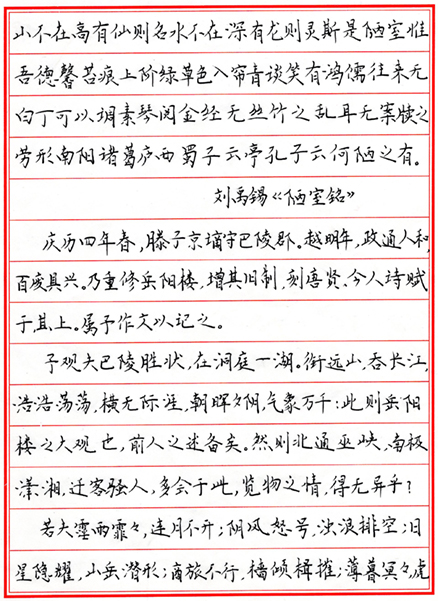 山不在高有仙则名水不在深有龙则灵斯是陋室惟
吾德馨苔痕上阶绿草色入帘青谈笑有鸿儒往来无
白丁可以调素琴阅金经无丝竹之乱耳无案牍之
劳形南阳诸葛庐西蜀子云亭孔子云何陋之有。
刘禹锡《陋室铭》
庆历四年春,滕子京谪守巴陵郡。越明年,政通人和,
百废具兴。乃重修岳阳楼,增其旧制,刻唐贤、今人诗赋
于其上。属予作文以记之。
予观夫巴陵胜状,在洞庭一湖。衔远山,吞长江,
浩浩荡荡,横无际涯,朝晖夕阴,气象万千;此则岳阳
楼之大观也,前人之述备矣。然则北通巫峡,南极
潇湘,迁客骚人,多会于此,览物之情,得无异乎?
若夫霪雨霏々,连月不开;阴风怒号,浊浪排空;日
星隐耀,山岳潜形;商旅不行,樯倾楫摧;薄暮冥々,虎